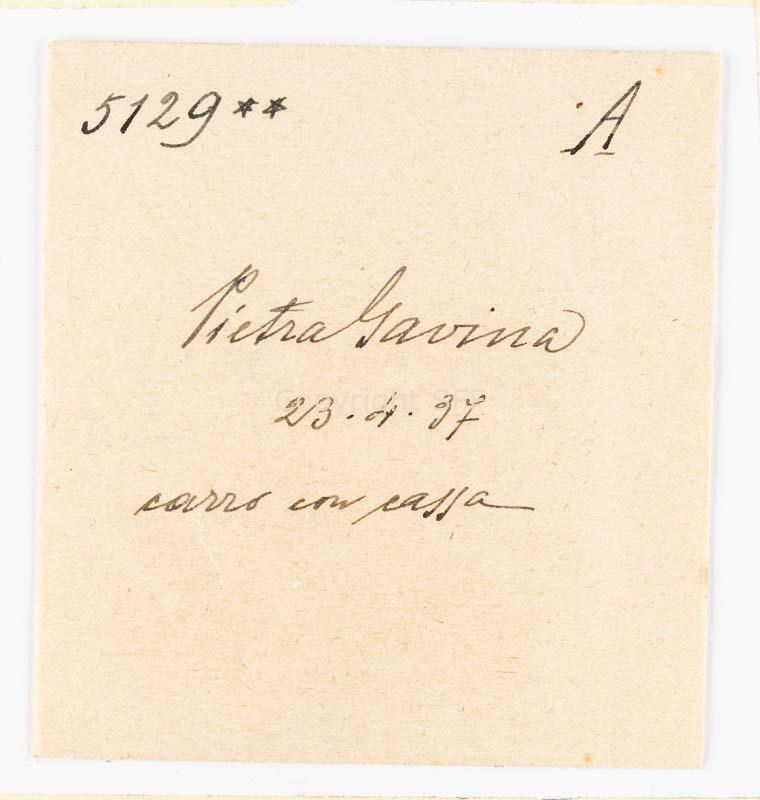 5129** A
Pietra Gavina
23.4.37
carro con cassa